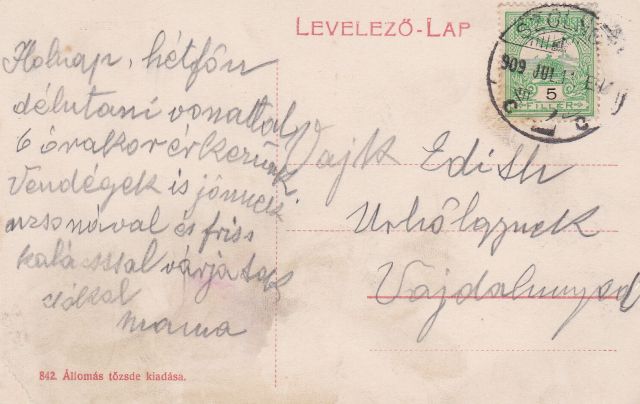 LEVELEZŐ-LAP
SZOLN
909 JUL
5
FILLÉR
Holnap, hétfőn
délutani vonattal
6 órakor érkezünk.
Vendégek is jönnek
uzsonával és friss
kaláccsal várjatok
csókol
mama
Vajk Edith
Urhölgynek
Vajdahunyad
842. Állomás tőzsde kiadása.